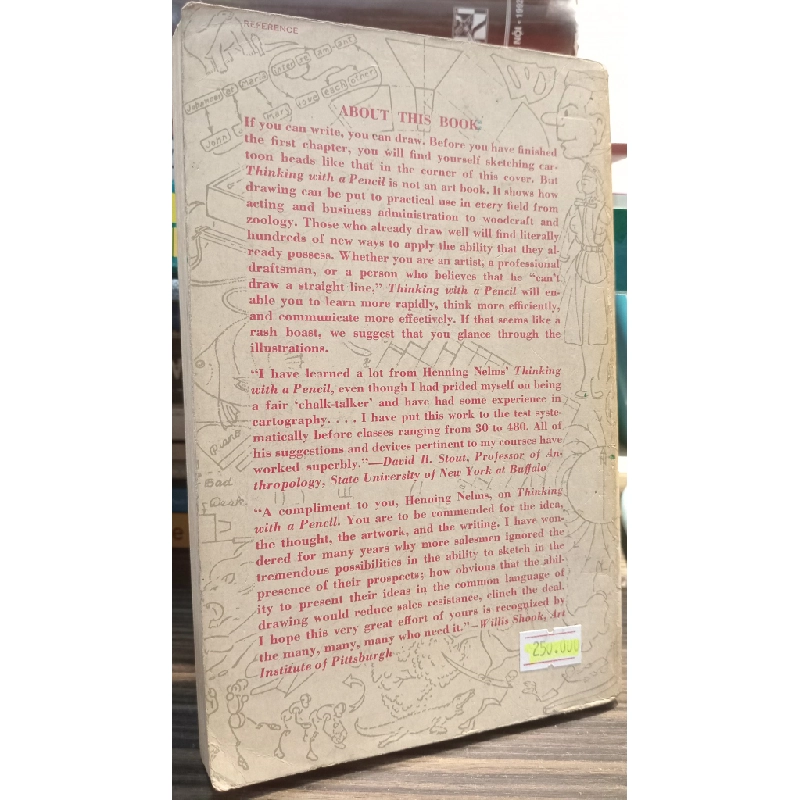 REFERENCE
NỘI - 1982
Japanese at Mars listed as am-ant
John Mary love each other
ABOUT THIS BOOK
If you can write, you can draw. Before you have finished
the first chapter, you will find yourself sketching car-
toon heads like that in the corner of this cover. But
Thinking with a Pencil is not an art book. It shows how
drawing can be put to practical use in every field from
acting and business administration to woodcraft and
zoology. Those who already draw well will find literally
hundreds of new ways to apply the ability that they al-
ready possess. Whether you are an artist, a professional
draftsman, or a person who believes that he "can't
draw a straight line," Thinking with a Pencil will en-
able you to learn more rapidly, think more efficiently,
and communicate more effectively. If that seems like a
rash boast, we suggest that you glance through the
illustrations.
"I have learned a lot from Henning Nelms' Thinking
with a Pencil, even though I had prided myself on being
a fair 'chalk-talker' and have had some experience in
cartography. . . . I have put this work to the test syste-
matically before classes ranging from 30 to 480. All of
his suggestions and devices pertinent to my courses have
worked superbly."—David B. Stout, Professor of An-
thropology, State University of New York at Buffalo
Piano
Bad
Desk
"A compliment to you, Henning Nelms, on Thinking
with a Pencil. You are to be commended for the idea,
the thought, the artwork, and the writing. I have won-
dered for many years why more salesmen ignored the
tremendous possibilities in the ability to sketch in the
presence of their prospects; how obvious that the abil-
ity to present their ideas in the common language of
drawing would reduce sales resistance, clinch the deal.
I hope this very great effort of yours is recognized by
the many, many, many who need it."—Willis Shook, Art
Institute of Pittsburgh
250.000